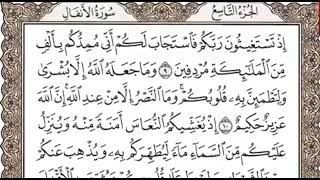 الجزء التاسع
سورة الأنفال
إِذْ تَسْتَغِيثُونَ رَبَّكُمْ فَاسْتَجَابَ لَكُمْ أَنِّي مُمِدُّكُم بِأَلْفٍ
مِّنَ الْمَلَائِكَةِ مُرْدِفِينَ ٩ وَمَا جَعَلَهُ اللَّهُ إِلَّا بُشْرَىٰ
وَلِتَطْمَئِنَّ بِهِ قُلُوبُكُمْ وَمَا النَّصْرُ إِلَّا مِنْ عِندِ اللَّهِ إِنَّ اللَّهَ
عَزِيزٌ حَكِيمٌ ١٠ إِذْ يُغَشِّيكُمُ النُّعَاسَ أَمَنَةً مِّنْهُ وَيُنَزِّلُ
عَلَيْكُم مِّنَ السَّمَاءِ مَاءً لِّيُطَهِّرَكُم بِهِ وَيُذْهِبَ عَنكُمْ